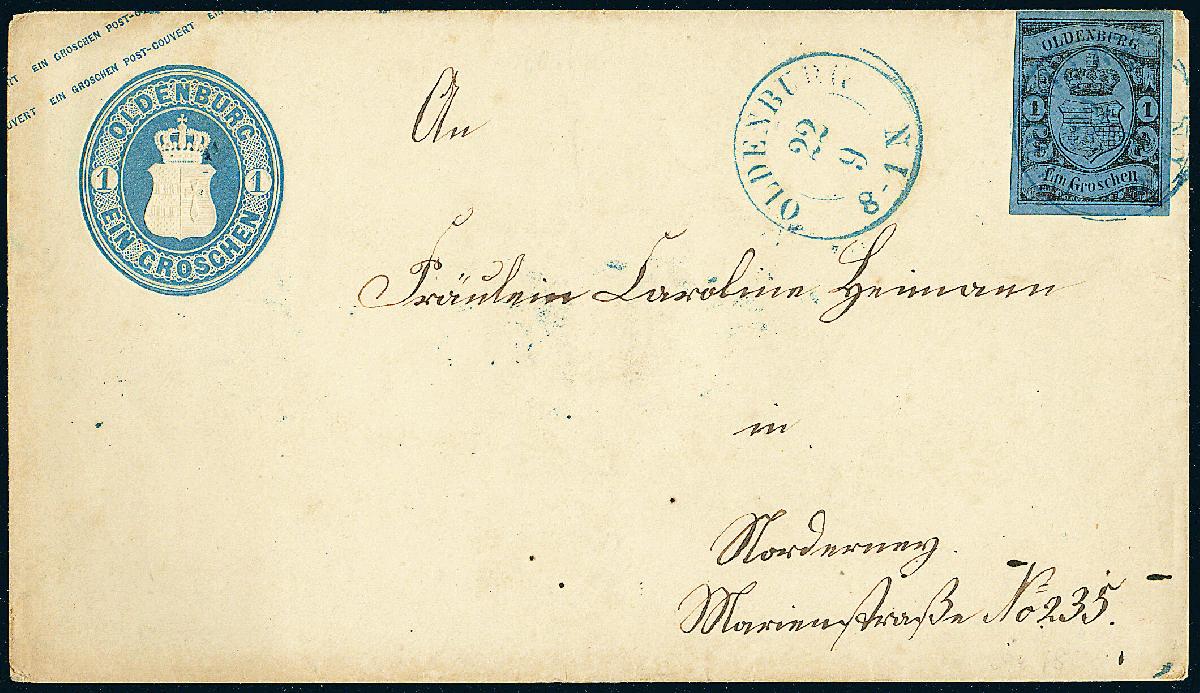 EIN GROSCHEN POST-COUVERT EIN
EIN GROSCHEN POST-COUVERT
OLDENBURG
1 1
EIN GROSCHEN
OLDENBURG
22
9
8-1N
OLDENBURG
1 1
Ein Groschen
An
Fräulein Caroline Heimann
in
Norderney.
Marienstraße No 235.